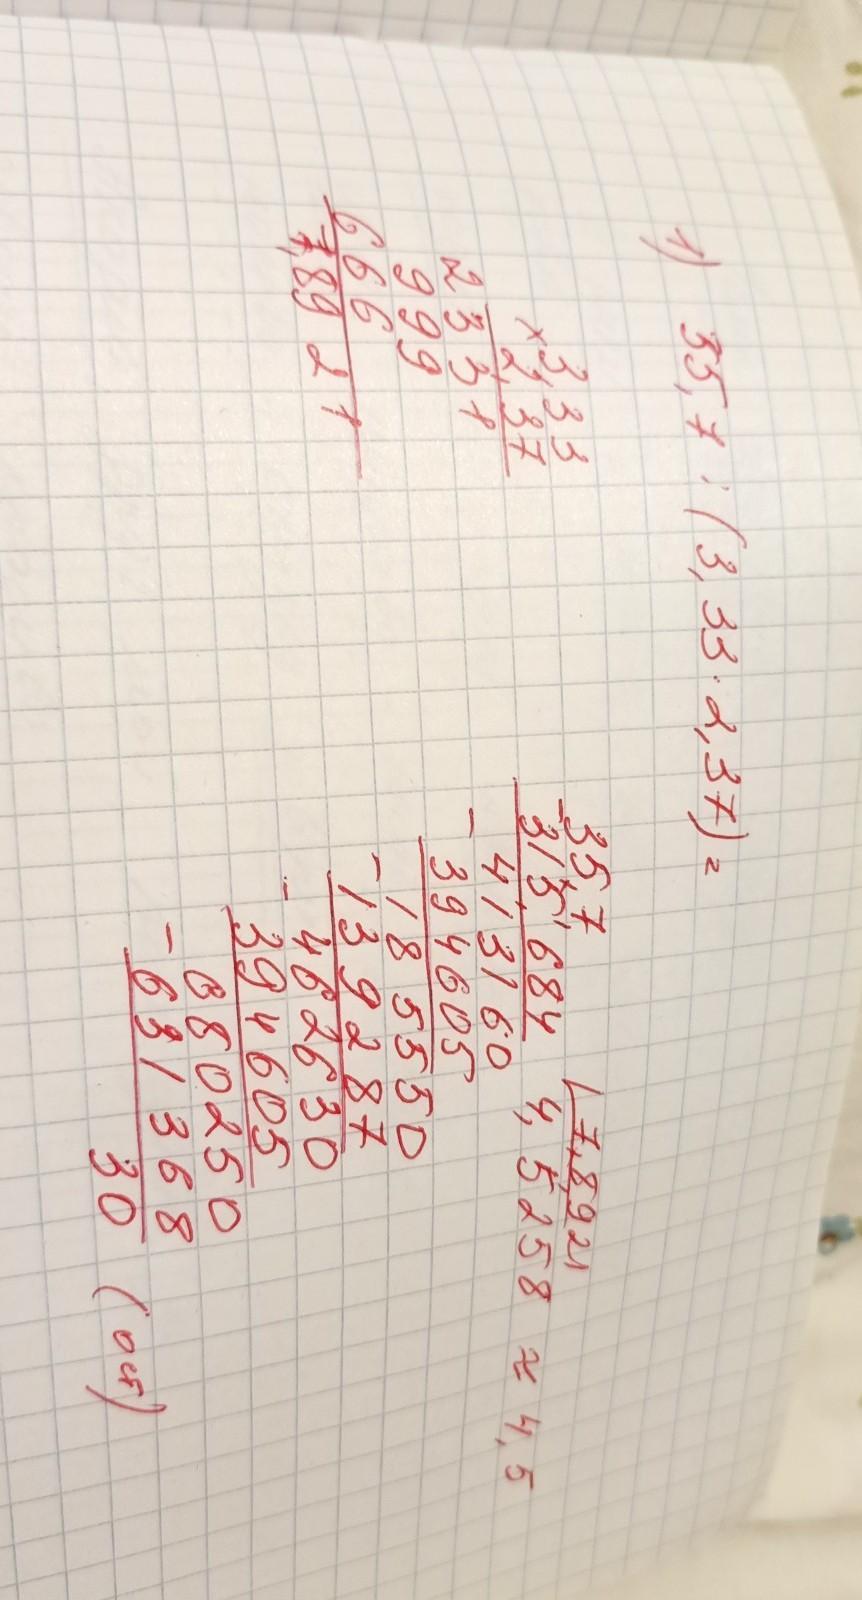 1) 35,7 : (3,33 · 2,37) =
× 3,33
2,37
2331
999
666
7,8921
- 35,7 | 7,8921
315 684 4,5258 ≈ 4,5
- 413160
394605
- 185550
139287
- 462630
394605
- 680250
631368
30 (ост)